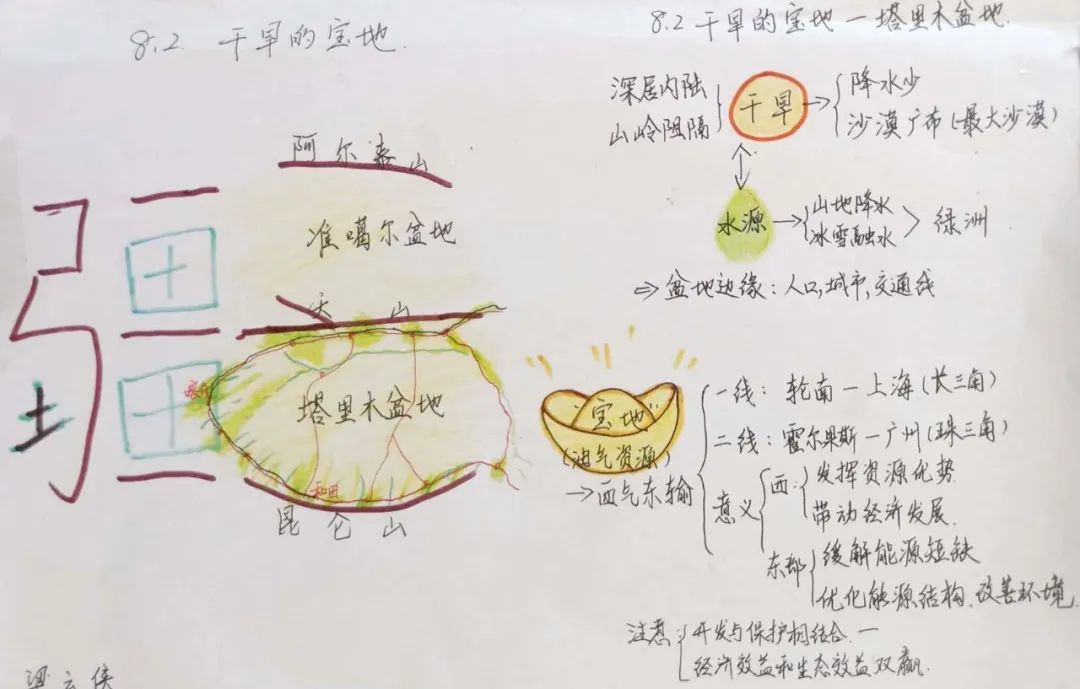 8.2 干旱的宝地
阿尔泰山
准噶尔盆地
天山
塔里木盆地
和田
昆仑山
疆
8.2 干旱的宝地－塔里木盆地
深居内陆
山岭阻隔
干旱
降水少
沙漠广布(最大沙漠)
水源
山地降水
冰雪融水
绿洲
⇒ 盆地边缘：人口,城市,交通线
"宝地"
(油气资源)
→西气东输
一线：轮南－上海(长三角)
二线：霍尔果斯－广州(珠三角)
意义
西：
发挥资源优势
带动经济发展.
东部
缓解能源短缺
优化能源结构、改善环境
注意：
开发与保护相结合.－
经济效益和生态效益双赢.